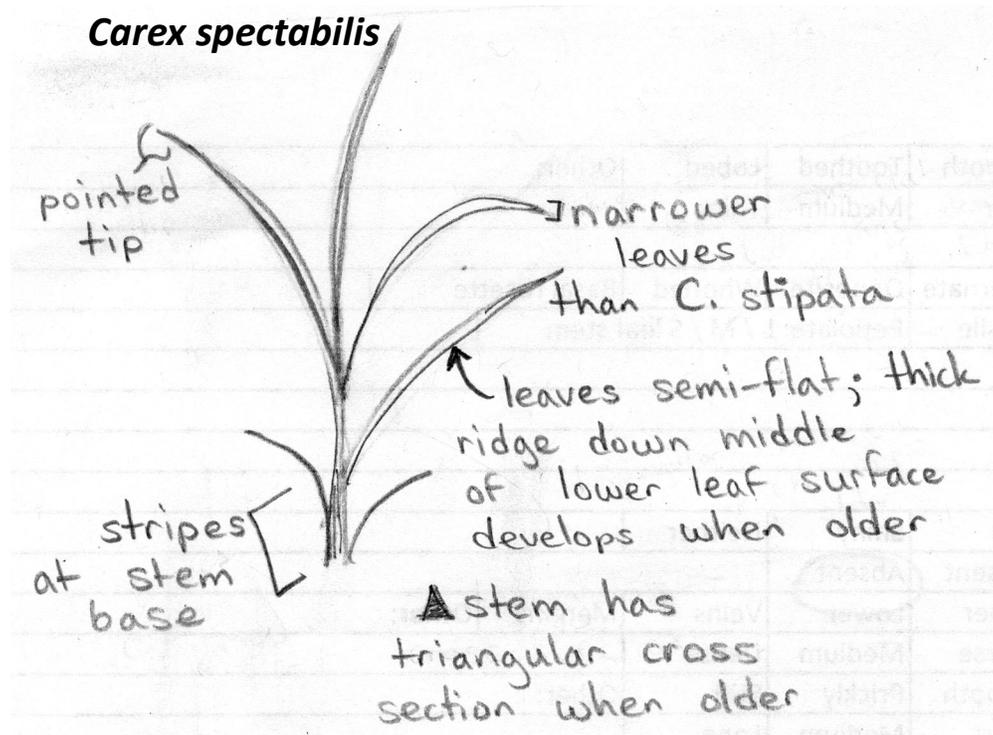 Carex spectabilis
pointed
tip
narrower
leaves
than C. stipata
leaves semi-flat; thick
ridge down middle
of lower leaf surface
develops when older
stripes
at stem
base
stem has
triangular cross
section when older